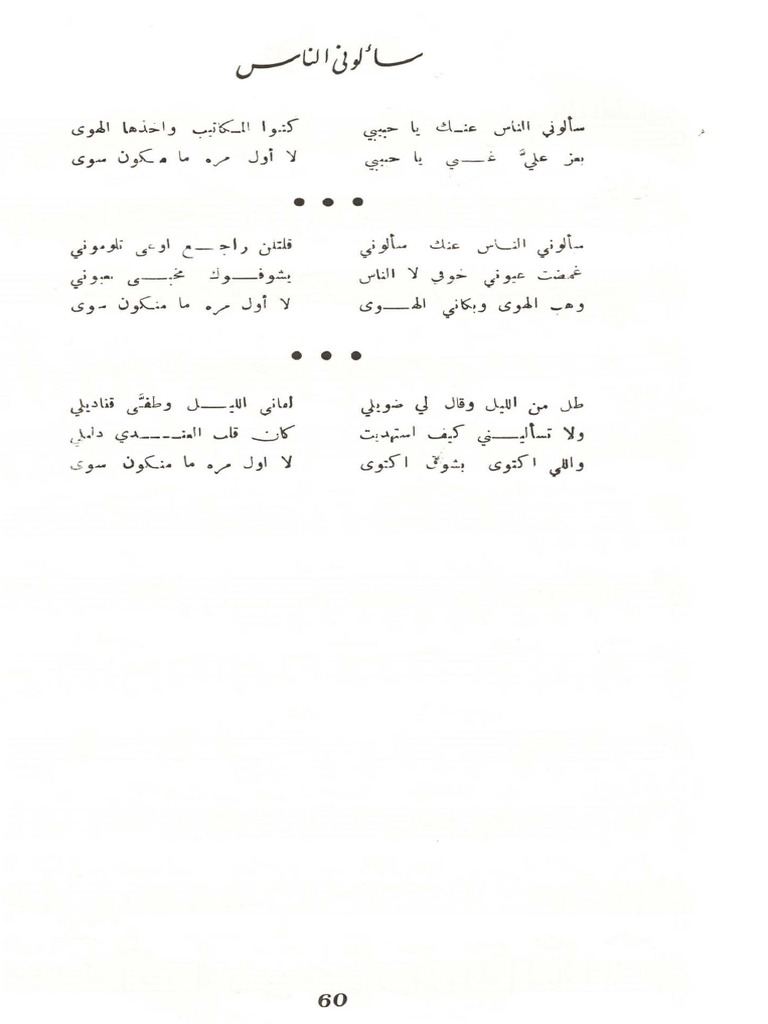 سألوني الناس
سألوني الناس عنك يا حبيبي كتبوا المكاتيب واخذها الهوى
بعز عليَّ غني يا حبيبي لا أول مره ما منكون سوى
● ● ●
سألوني الناس عنك سألوني قلتلن راجع اوعى تلوموني
غمضت عيوني خوفي لا الناس يشوفوك مخبى بعيوني
وهب الهوى وبكاني الهوى لا أول مره ما منكون سوى
● ● ●
طل من الليل وقال لي ضويلي لماني الليل وطفَّى قناديلي
ولا تسأليني كيف استهديت كان قلب العندي دليلي
واللي اكتوى بشوق اكتوى لا اول مره ما منكون سوى
60